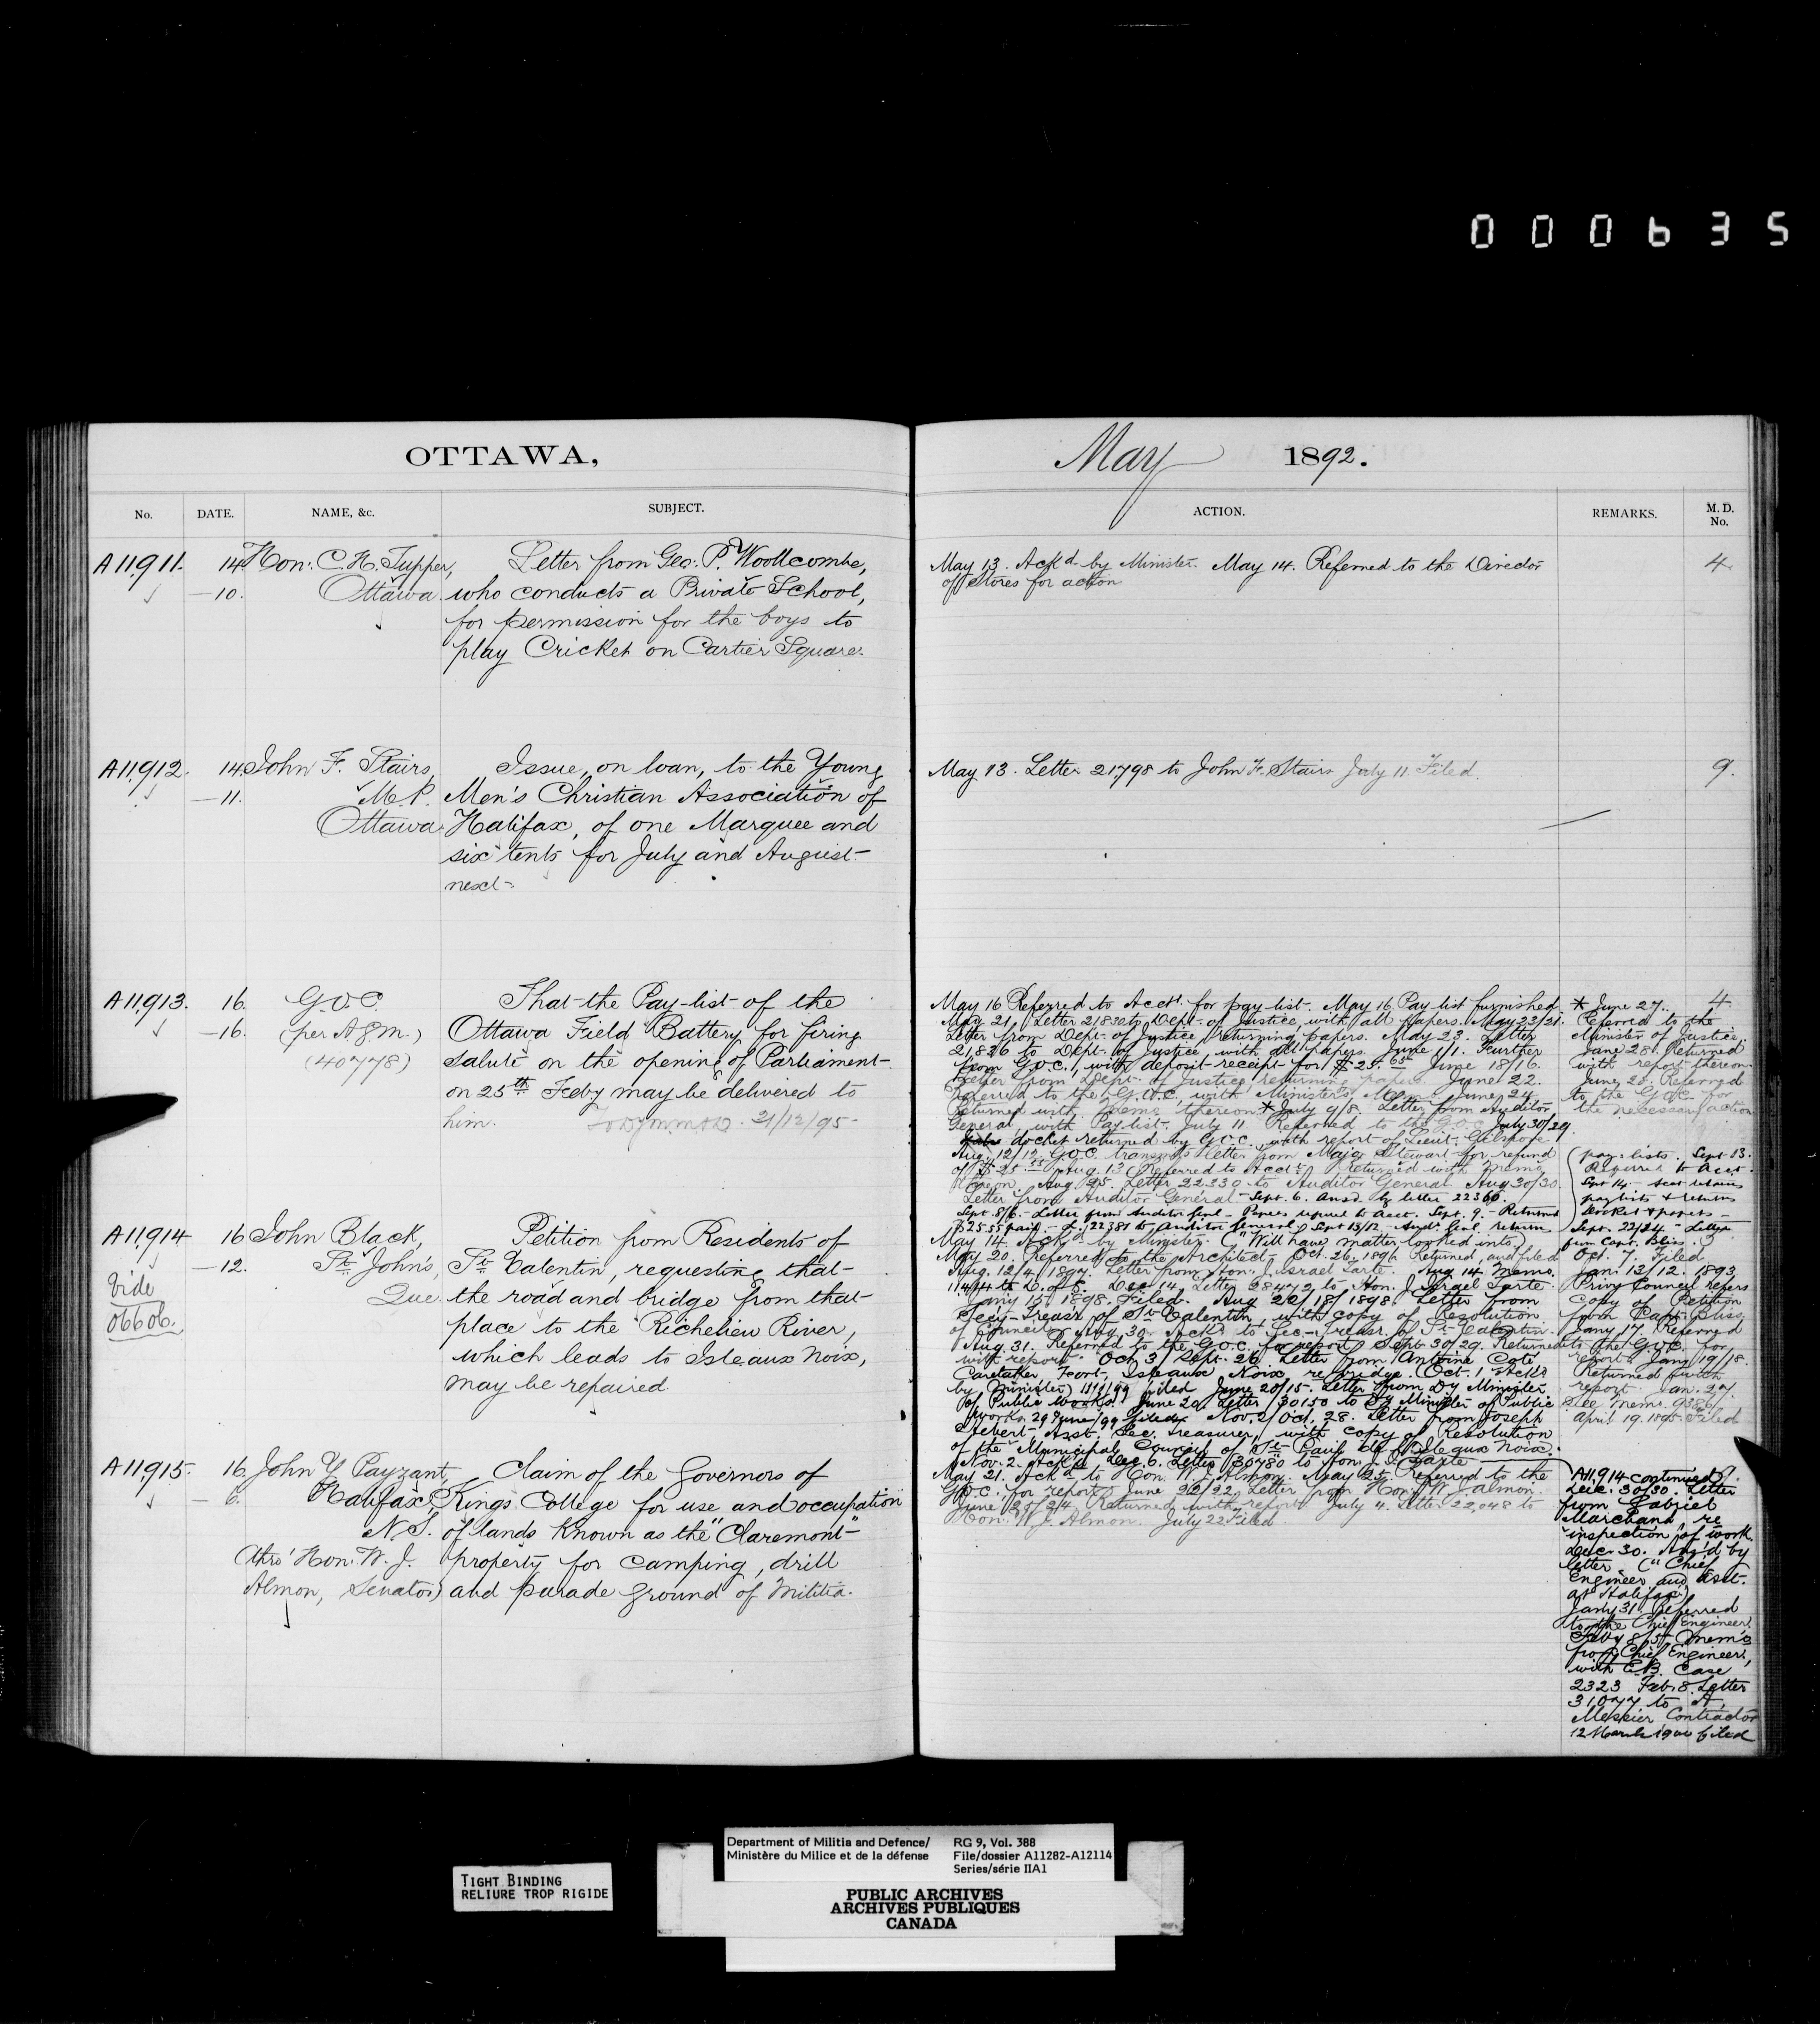 000635
OTTAWA,
No.
DATE.
NAME, &c.
SUBJECT.
A11,911.
14.
—10.
Hon: C. H. Tupper,
Ottawa.
Letter from Geo: P. Woollcombe,
who conducts a Private School,
for permission for the boys to
play Cricket on Cartier Square.
A11,912.
14.
—11.
John F. Stairs,
M.P.
Ottawa.
Issue, on loan, to the Young
Men's Christian Association of
Halifax, of one Marquee and
six tents for July and August
next.
A11,913.
16.
—16.
G.O.C.
(per A.G.M.)
(40778)
That the Pay-list of the
Ottawa Field Battery for firing
salute on the opening of Parliament
on 25th Feby may be delivered to
him.
21/12/95
A11,914
vide
06606.
16
—12.
John Black,
St. John's,
Que.
Petition from Residents of
St. Valentin, requesting that
the road and bridge from that
place to the Richelieu River,
which leads to Isle aux Noix,
may be repaired.
A11,915.
16.
— 6.
John Y. Payzant,
Halifax,
N.S.
(thro' Hon: W. J.
Almon, Senator)
Claim of the Governors of
Kings College for use and occupation
of lands known as the "Claremont"
property for camping, drill
and parade ground of Militia.
May 1892.
ACTION.
REMARKS.
M. D.
No.
May 13. Ack'd. by Minister. May 14. Referred to the Director
of Stores for action
4.
May 13. Letter 21,798 to John F. Stairs July 11. Filed.
9.
May 16 Referred to Acct. for pay-list. May 16. Pay list furnished.
May 21. Letter 21830 to Dept. of Justice, with all papers. May 23/21.
Letter from Dept. of Justice, returning papers. May 23. Letter
21,826 to Dept. of Justice, with all papers. June 1/1. Further
from G.O.C., with deposit-receipt for $25. June 18/16.
Letter from Dept. of Justice, returning papers. June 22.
Referred to the G.O.C. with Minister's June 24.
Returned with Memo thereon * July 9/8. Letter from Auditor
General, with Pay-list. July 11. Referred to the G.O.C. July 30/29
docket returned by G.O.C., with report of Lieut. Gilmore.
Aug. 12/12. G.O.C. transmits letter from Major Stewart for refund
of $25. Aug. 13. Referred to Acct. Returned with Memo
thereon. Aug 25. Letter 22230 to Auditor General Aug 30/30.
Letter from Auditor General - Sept. 6. Ansd. by letter 22360.
Sept. 8/6. - Letter from Auditor Genl - Papers referred to Acct. Sept. 9. - Returned
$25.55 paid - L. 22381 to Auditor General. Sept 13/12 - Audr. Genl. return
* June 27.
Referred to the
Minister of Justice.
June 28. Returned
with report thereon.
June 28. Referred
to the G.O.C. for
the necessary action
4.
pay-lists. Sept 13.
Referred to Acct.
Sept 14 - Acct retains
paylists & returns
docket & papers -
Sept. 22/24 - Letter
from Capt. Bliss.
May 14. Ack'd. by Minister. ("Will have matter looked into")
May 20. Referred to the Architect. Oct. 26. 1896 Returned, and filed
Aug. 12/4 1897. Letter from Hon. J. Israel Tarte. Aug 14. Memo.
Dec. 14. Letter 28472 to Hon. J. Israel Tarte.
Jany 15 1898. Filed. Aug 22/18/1898. Letter from
Secy-Treasr. of St. Valentin, with copy of Resolution
of Council. Aug. 30. Ack'd. to Sec-Treasr. of St. Valentin.
Aug. 31. Referred to the G.O.C. for report. Sept. 30/29. Returned
with report. Oct 3/Sept. 26. Letter from Antoine Coté
Caretaker Fort, Isle aux Noix re bridge. Oct. 1 Ack'd
by (Minister) filed June 20/15. Letter from Dy Minister
of Public Works. June 20. Letter 30150 to Dy Minister of Public
Works. 29 June/99 filed. Nov. 2/Oct. 28. Letter from Joseph
Hebert Asst. Sec. Treasurer, with copy of Resolution
of the Municipal Council of St. Paul de l'Isle aux Noix.
Nov. 2. Ack'd. Dec. 6. Letter 30780 to Hon. J. I. Tarte
Oct. 7. Filed
Jan. 13/12. 1893
Privy Council refers
Copy of Petition
from Capt. Bliss.
Jany 17. Referred
to the G.O.C. for
report. Jany 19/18.
Returned with
report. Jan. 27.
See Memo. 9386
April 19. 1895 Filed
May 21. Ack'd. to Hon. W. J. Almon. May 25. Referred to the
G.O.C. for report. June 22/22. Letter from Hon. W. J. Almon.
June 25/24. Returned with report. July 4. Letter 22,048 to
Hon. W. J. Almon. July 22 Filed.
9.
A11,914 continued
Dec. 30/30. Letter
from Gabriel
Marchand, re
inspection of work.
Dec. 30. Ans'd by
letter ("Chief
Engineer and Asst.
at Halifax")
Jany 31. Referred
to the Chief Engineer.
Feby 8/5. Memo
from Chief Engineer,
with C.B. Case
2323 Feb. 8. Letter
31077 to A.
Messier Contractor
12 March 1900 filed
TIGHT BINDING
RELIURE TROP RIGIDE
Department of Militia and Defence/
Ministère du Milice et de la défense
RG 9, Vol. 388
File/dossier A11282-A12114
Series/série IIA1
PUBLIC ARCHIVES
ARCHIVES PUBLIQUES
CANADA